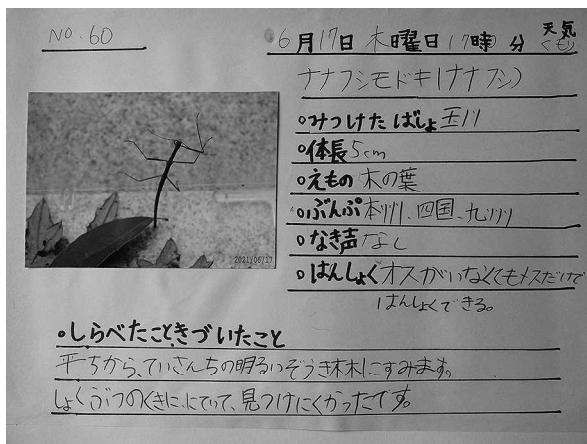 NO.60
6月17日 木曜日 17時 分 天気 くもり
ナナフシモドキ(ナナフシ)
みつけた ばしょ 玉川
体長 5cm
えもの 木の葉
ぶんぷ 本州、四国、九州
なき声 なし
はんしょく オスがいなくてもメスだけで
はんしょくできる。
2021/06/17
しらべたこときづいたこと
平ちから、ていさんちの明るいぞうき林にすみます。
しょくぶつのくきに、にていて、見つけにくかったです。